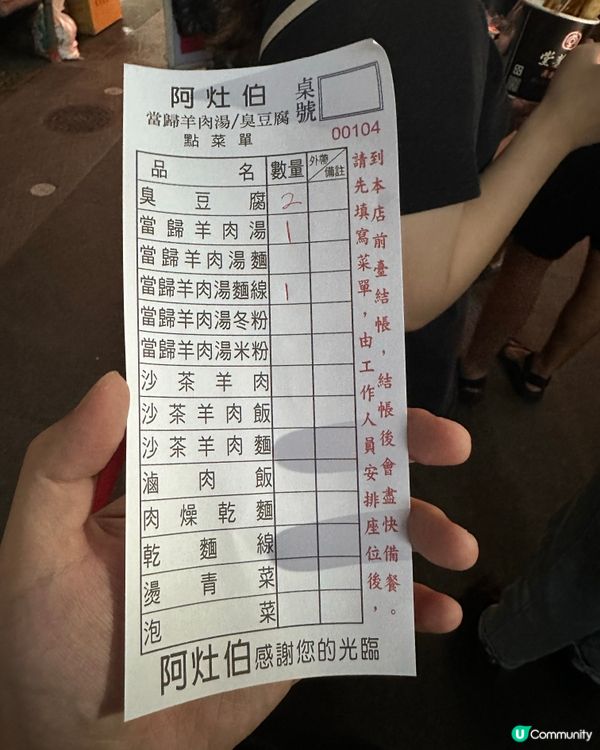 阿灶伯
當歸羊肉湯/臭豆腐
點菜單
桌號
00104
品名 數量 外帶/備註
臭豆腐 2
當歸羊肉湯 1
當歸羊肉湯麵
當歸羊肉湯麵線 1
當歸羊肉湯冬粉
當歸羊肉湯米粉
沙茶羊肉
沙茶羊肉飯
沙茶羊肉麵
滷肉飯
肉燥乾麵
乾麵線
燙青菜
泡菜
請先填寫菜單，由工作人員安排座位後，
到本店前臺結帳，結帳後會盡快備餐。
阿灶伯感謝您的光臨
U Community